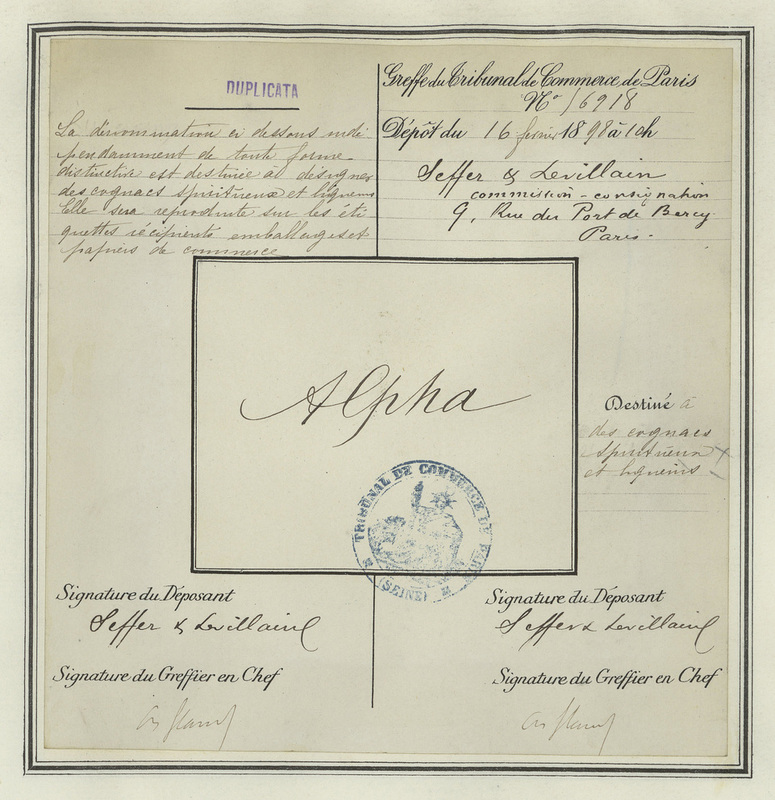 DUPLICATA
La dénommination ci dessous indé
pendamment de toute forme
distinctive est destinée à désigner
des cognacs spiritueux et liqueurs
Elle sera reproduite sur les éti
quettes récipients emballages et
papiers de commerce
Greffe du Tribunal de Commerce de Paris
No 56918
Dépôt du 16 fevrier 1898 à 1 ch
Seffer & Levillain
commission - consignation
9, Rue du Port de Bercy
Paris.
Alpha
Destiné à
des cognacs
spiritueux
et liqueurs
TRIBUNAL DE COMMERCE DE PARIS
(SEINE)
Signature du Déposant
Seffer & Levillain
Signature du Greffier en Chef
Signature du Déposant
Seffer & Levillain
Signature du Greffier en Chef